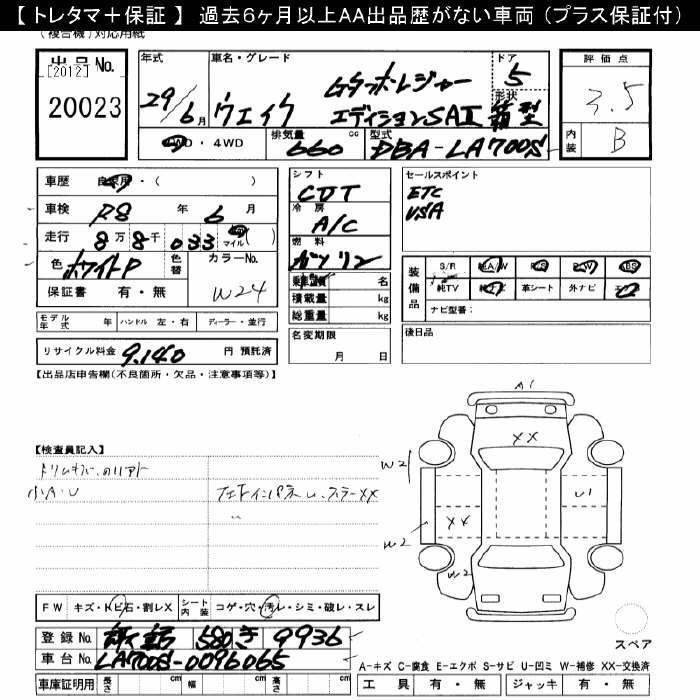 【 トレタマ＋保証 】 過去6ヶ月以上AA出品歴がない車両 (プラス保証付)
(複合機)対応用紙
出品No.
[2012]
20023
年式
29/6月
車名・グレード
ウェイク
Gターボレジャー
エディションSAⅢ
ドア
5
形状
箱型
評価点
3.5
内装
B
4WD
排気量
660
cc
型式
DBA-LA700S
車歴
自家用・( )
車検
R8 年 6 月
走行
8万8千033
マイル( )
色
ホワイトP
色替
カラーNo.
W24
保証書 有・無
シフト
CVT
冷房
A/C
燃料
ガソリン
乗車定員 名
積載量 kg
総重量 kg
セールスポイント
ETC
VSA
装備品
S/R
純A/W
P/S
P/W
ABS
純TV
純ナビ
革シート
外ナビ
エアB
ナビ型番：
モデル年式 年
ハンドル 左・右
ディーラー・並行
名変期限
月 日
後日品
リサイクル料金
9,140
円 預託済
【出品店申告欄(不良箇所・欠品・注意事項等)】
【検査員記入】
小A・U
A1
XX
W2
U1
XX
W2
W2
FW
キズ・トビ石・割レX
シート内装
コゲ・穴・汚レ・シミ・破レ・スレ
登録No.
580 き 9936
車台No.
LA700S-0096065
車庫証明用
長さ cm
幅 cm
高さ cm
スペア
A-キズ C-腐食 E-エクボ S-サビ U-凹ミ W-補修 XX-交換済
工具 有・無
ジャッキ 有・無